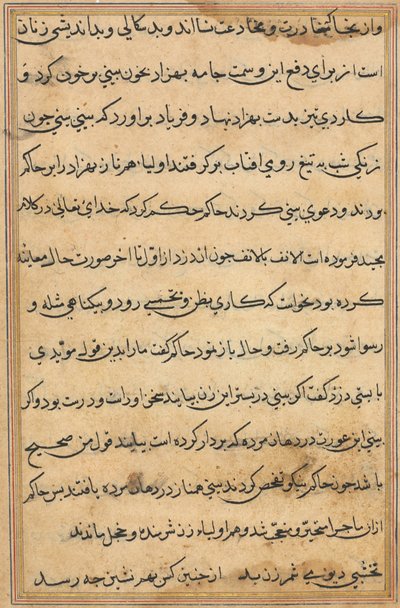 و از بخا کیفا درت و مخادعت نسا اند و بد سکالی و بد اندیشی زنان
است از برای دفع این وسمت جامه بهزاد بخون بینی پر خون کرد و
کاردی تیز بدست بهزاد نهاد و فریاد براورد که بینی بینی چون
زنکی شب به تیغ روی افتاب بر گرفتند اولیاء هرناز بهزاد را بر حاکم
بردند و دعوی بینی کردند حاکم حکم کرد که خدای تعالی در کلام
مجید فرموده است الانف بالانف چون ان دزد از اول تا اخر صورت حال معاینه
کرده بود نخواست که کاری بظن و تخمینی رود و بیکناهی مثله و
رسوا شود بر حاکم رفت و حال باز نمود حاکم گفت ما را بدین قول مؤیدی
بایستی دزد گفت اگر بینی در بستر این زن بیابند سخن او راست و درست بود و اکر
بینی این عورت در دهان مرده که بر دار کرده است بیابند قول من صحیح
باشد چون حاکم نیکو تفحص کردند بینی هنناز در دهان مرده یافتند پس حاکم
از ان ماجرا متحیر و متعجب شد و همه اولیاء زن شرمنده و خجل ماندند
نخشبی دیو بی ثمر زند ید از چنین کس بهر نشین چه رسد